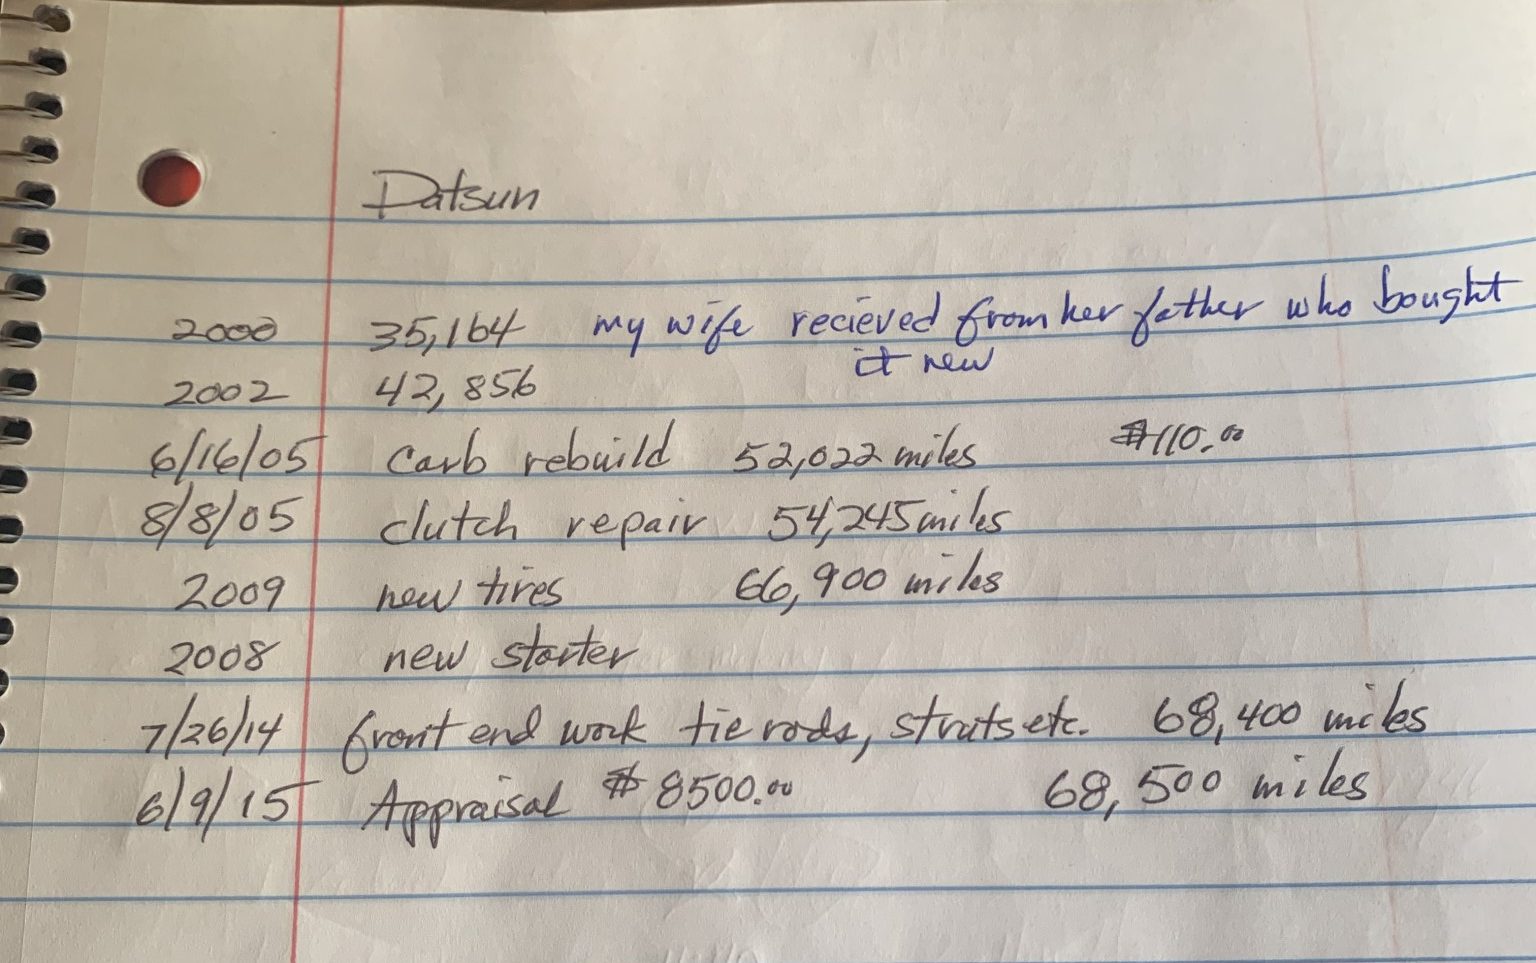 Datsun
2000 35,164 my wife recieved from her father who bought
it new
2002 42,856
6/16/05 Carb rebuild 52,022 miles $110.00
8/8/05 clutch repair 54,245 miles
2009 new tires 66,900 miles
2008 new starter
7/26/14 front end work tie rods, struts etc. 68,400 miles
6/9/15 Appraisal $8500.00 68,500 miles